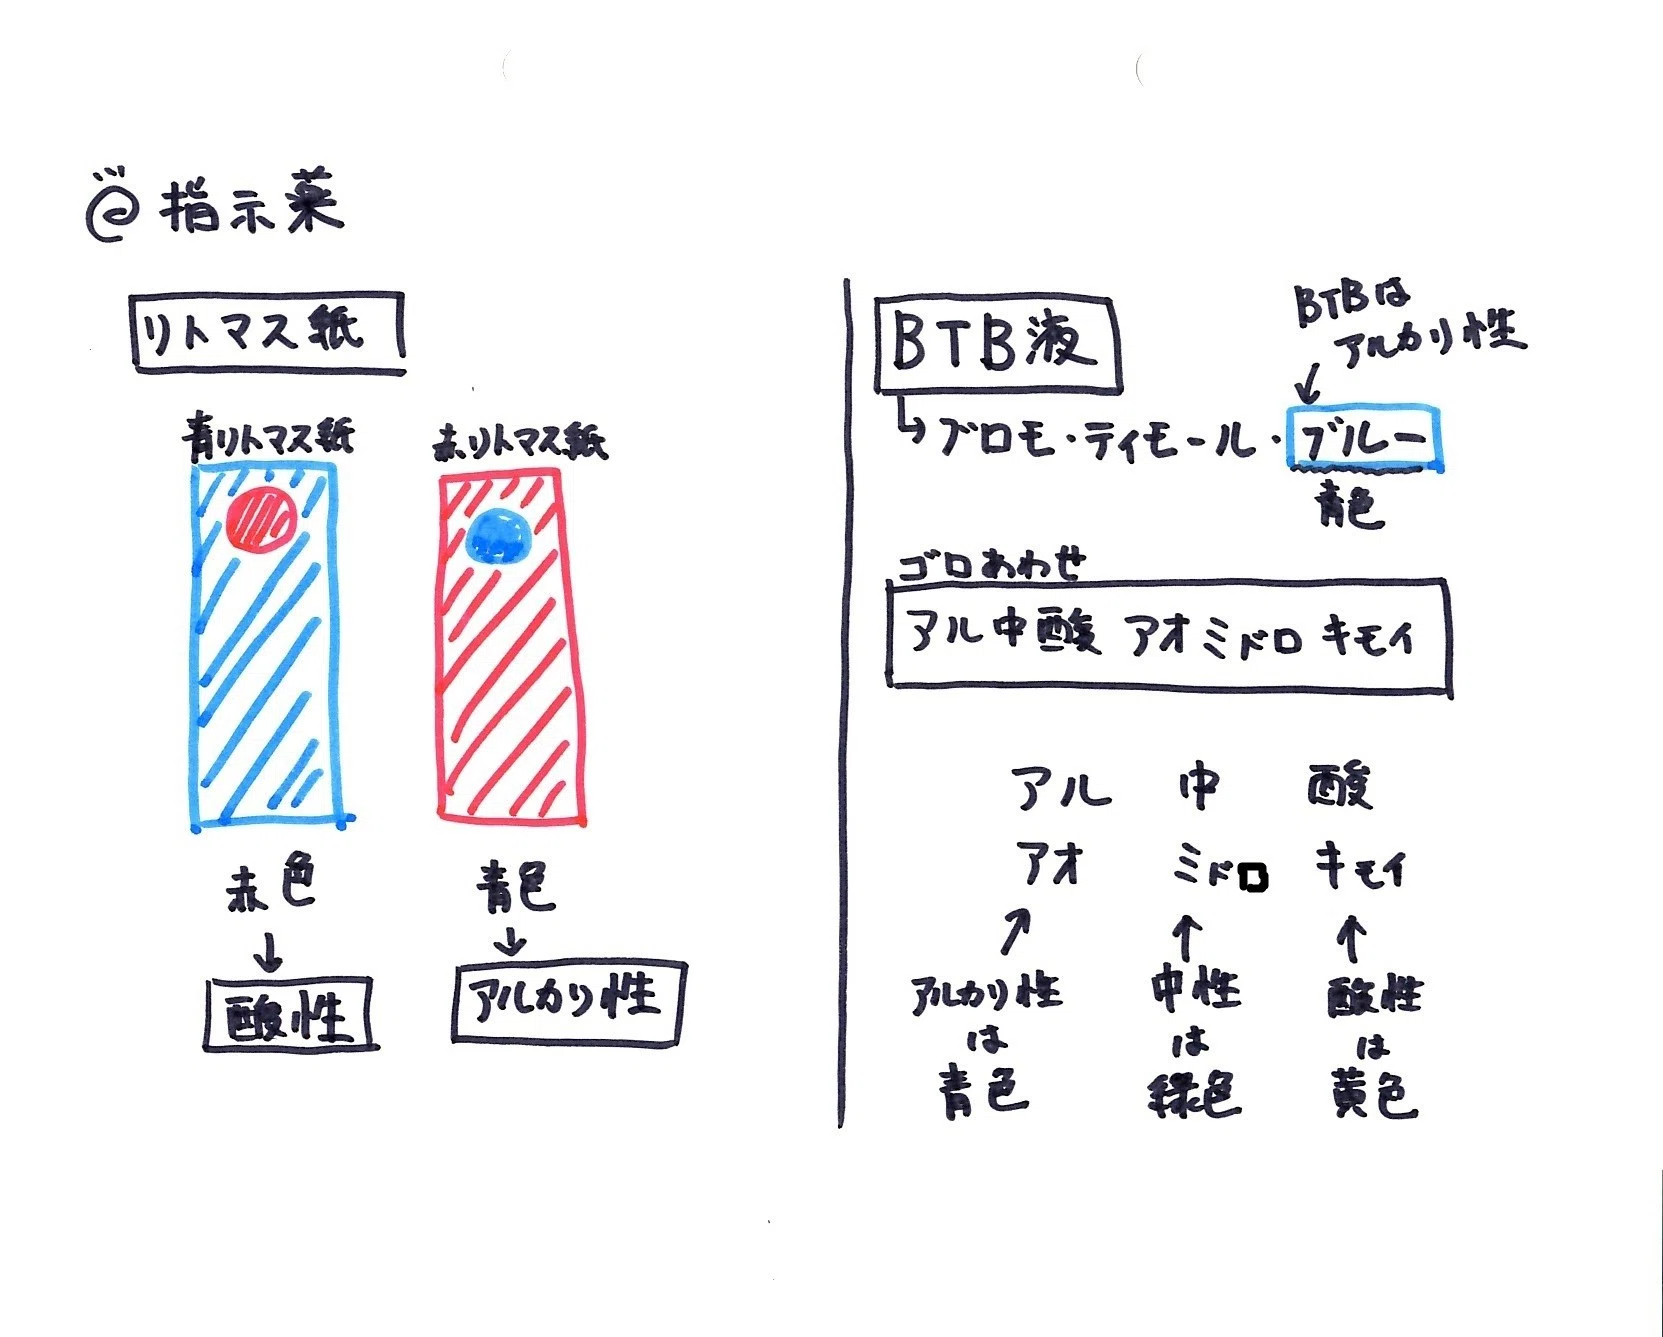 指示薬
リトマス紙
青リトマス紙
赤リトマス紙
赤色
青色
↓
↓
酸性
アルカリ性
BTB液
BTBは
アルカリ性
↓
↳ブロモ・ティモール・ブルー
青色
ゴロあわせ
アル中酸 アオミドロ キモイ
アル 中 酸
アオ ミドロ キモイ
↗ ↑ ↑
アルカリ性 中性 酸性
は は は
青色 緑色 黄色